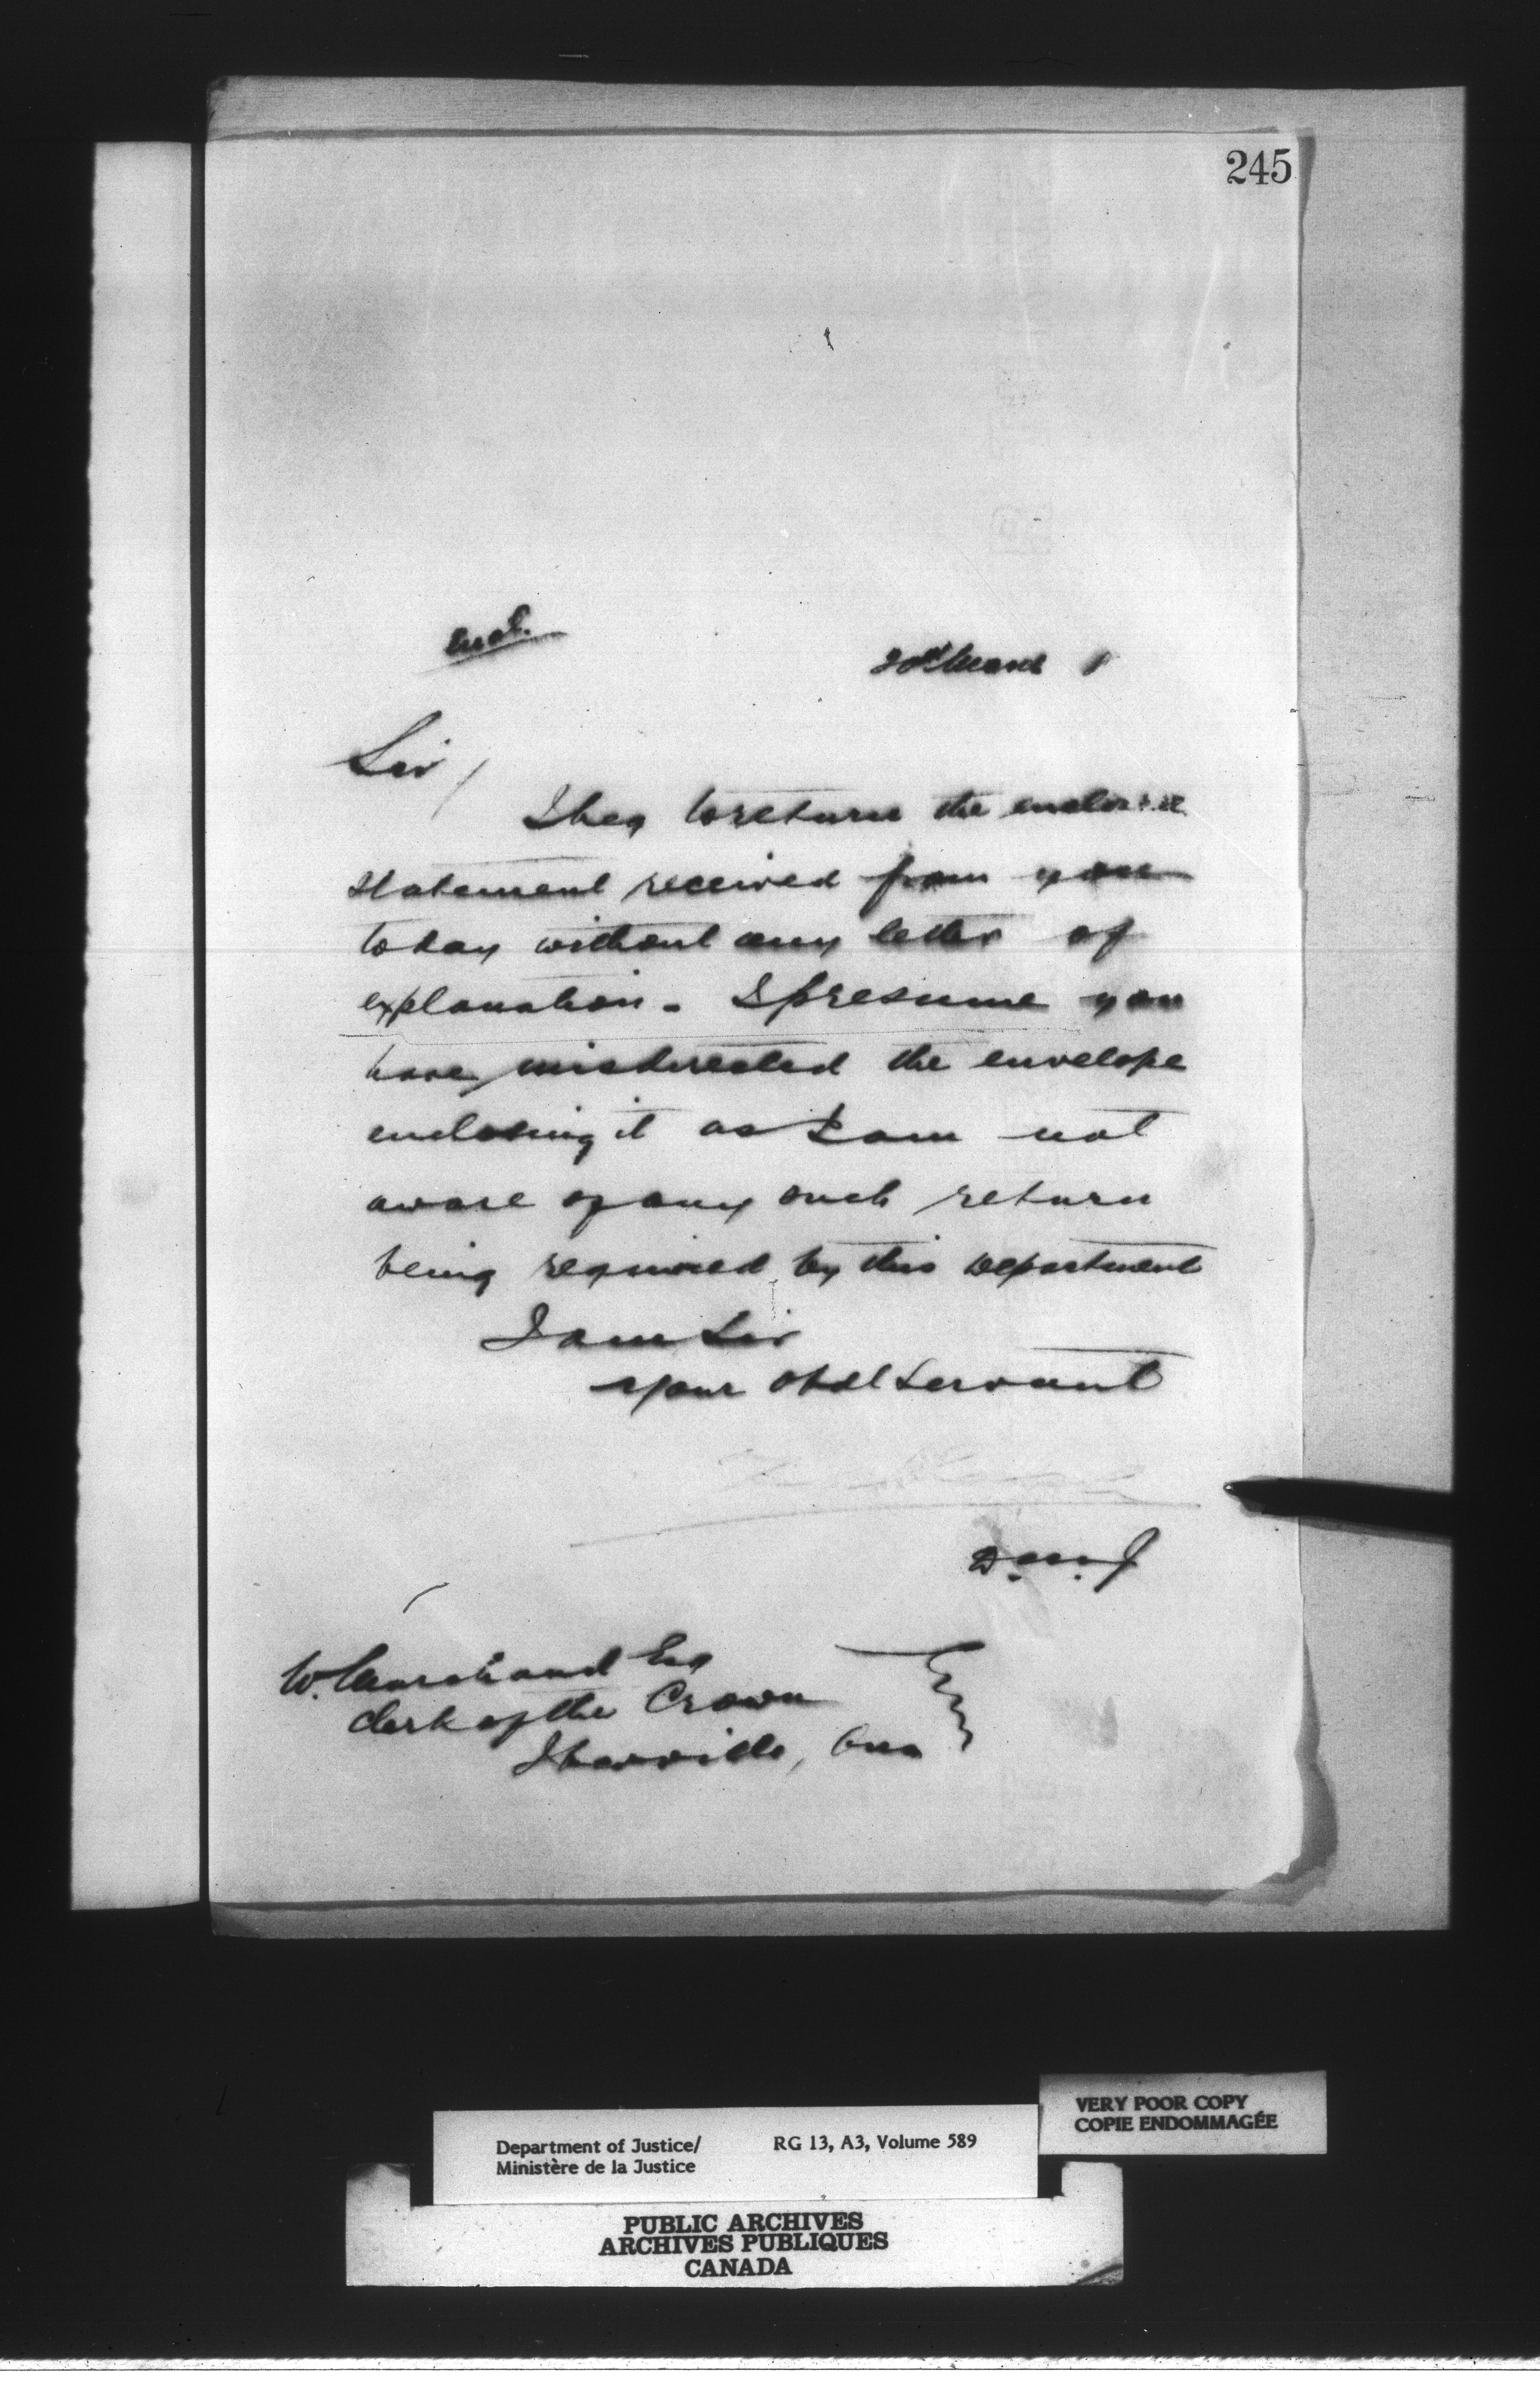 245
Encl.
20th March 1
Sir /
I beg to return the enclosed
statement received from you
today without any letter of
explanation - I presume you
have misdirected the envelope
enclosing it as I am not
aware of any such return
being required by this Department
I am Sir
your obdt servant
D.M.J
W. Marchand Esq
Clerk of the Crown
Iberville, Que
VERY POOR COPY
COPIE ENDOMMAGÉE
Department of Justice/ RG 13, A3, Volume 589
Ministère de la Justice
PUBLIC ARCHIVES
ARCHIVES PUBLIQUES
CANADA